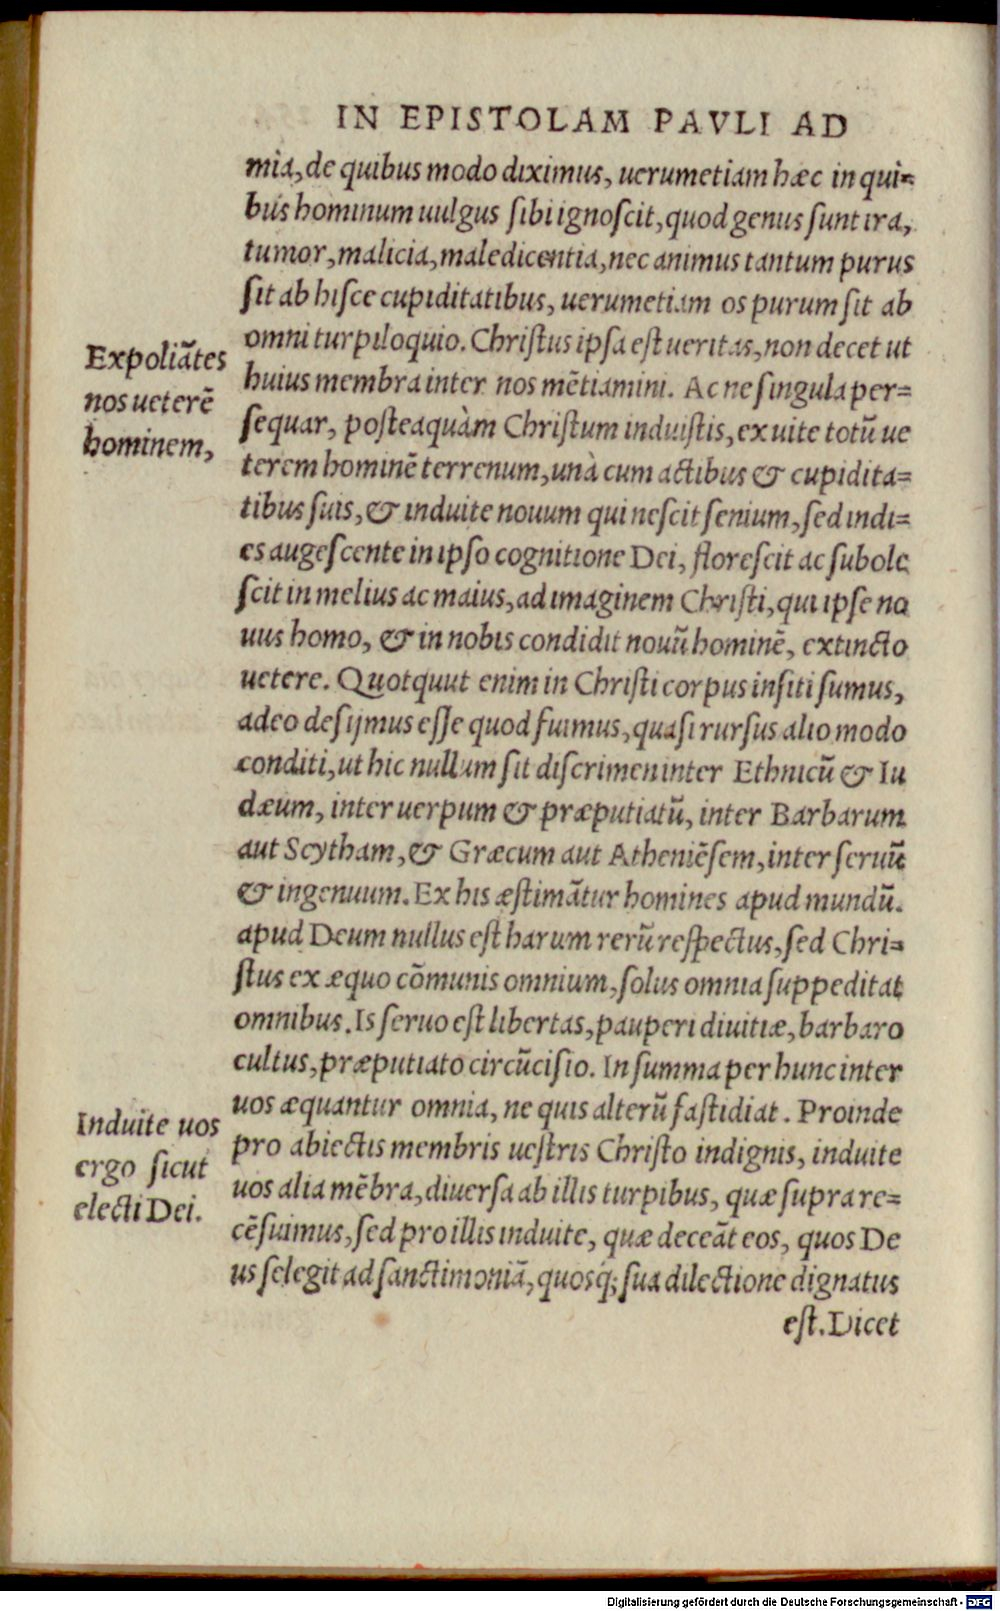 IN EPISTOLAM PAVLI AD
mia, de quibus modo diximus, uerumetiam hæc in qui-
bus hominum uulgus sibi ignoſcit, quod genus ſunt ira,
tumor, malicia, maledicentia, nec animus tantum purus
ſit ab hiſce cupiditatibus, uerumetiam os purum ſit ab
omni turpiloquio. Chriſtus ipſa eſt ueritas, non decet ut
huius membra inter nos mētiamini. Ac ne ſingula per-
ſequar, poſteaquàm Chriſtum induiſtis, exuite totū ue
terem hominē terrenum, unà cum actibus & cupidita-
tibus ſuis, & induite nouum qui neſcit ſenium, ſed indi-
es augeſcente in ipſo cognitione Dei, floreſcit ac ſubole
ſcit in melius ac maius, ad imaginem Chriſti, qui ipſe no
uus homo, & in nobis condidit nouū hominē, extincto
uetere. Quotquut enim in Chriſti corpus inſiti ſumus,
adeo deſijmus eſſe quod fuimus, quaſi rurſus alio modo
conditi, ut hic nullum ſit diſcrimen inter Ethnicū & Iu
dæum, inter uerpum & præputiatū, inter Barbarum
aut Scytham, & Græcum aut Atheniēſem, inter ſeruū
& ingenuum. Ex his æſtimātur homines apud mundū.
apud Deum nullus eſt harum rerū reſpectus, ſed Chri-
ſtus ex æquo cōmunis omnium, ſolus omnia ſuppeditat
omnibus. Is ſeruo eſt libertas, pauperi diuitiæ, barbaro
cultus, præputiato circūciſio. In ſumma per hunc inter
uos æquantur omnia, ne quis alterū faſtidiat. Proinde
pro abiectis membris ueſtris Chriſto indignis, induite
uos alia mēbra, diuerſa ab illis turpibus, quæ ſupra re-
cēſuimus, ſed pro illis induite, quæ deceāt eos, quos De
us ſelegit ad ſanctimoniā, quosq́; ſua dilectione dignatus
eſt. Dicet
Expoliātes
nos ueterē
hominem,
Induite uos
ergo ſicut
electi Dei.
Digitalisierung gefördert durch die Deutsche Forschungsgemeinschaft - DFG